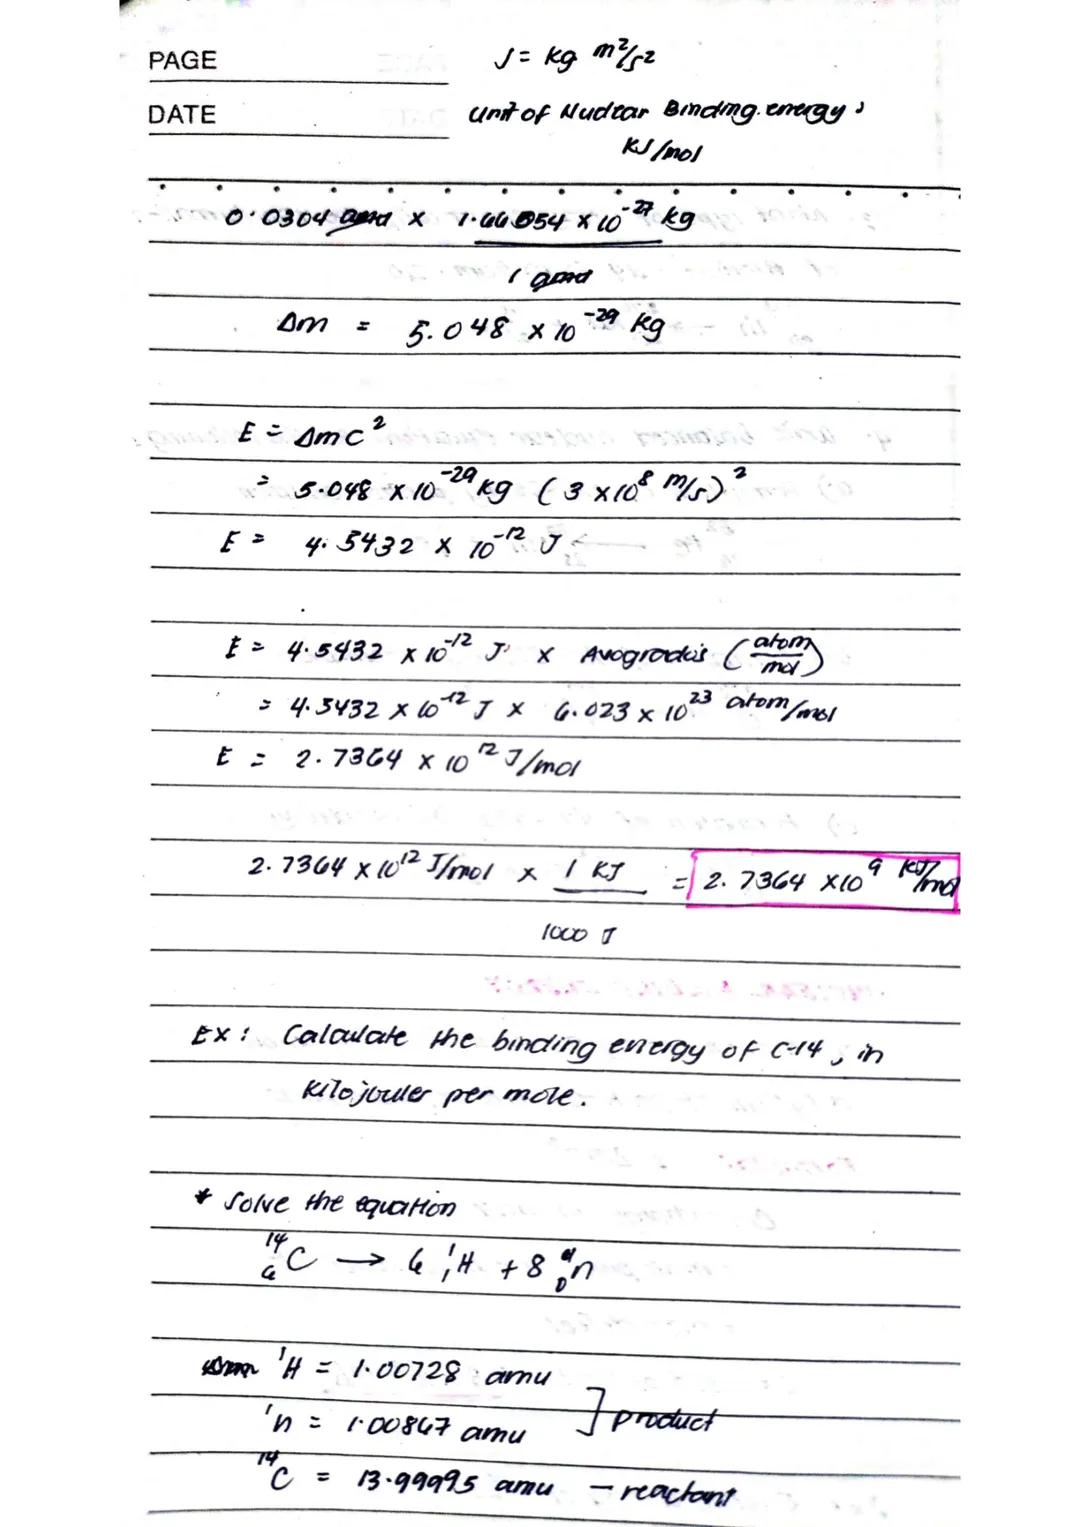 PAGE
J = kg m²/s²
DATE
unit of Nuclear Binding energy :
KJ/mol
0.0304 amu x 1.66054 x 10⁻²⁷ kg
1 amu
Δm = 5.048 x 10⁻²⁹ kg
E = Δmc²
= 5.048 x 10⁻²⁹ kg (3 x 10⁸ m/s)²
E = 4.5432 x 10⁻¹² J
E = 4.5432 x 10⁻¹² J x Avogradro's (atom/mol)
= 4.5432 x 10⁻¹² J x 6.023 x 10²³ atom/mol
E = 2.7364 x 10¹² J/mol
2.7364 x 10¹² J/mol x 1 KJ = 2.7364 x 10⁹ KJ/mol
1000 J
Ex : Calculate the binding energy of C-14, in
kilojoules per mole.
* Solve the equation
¹⁴₆C → 6 ¹₁H + 8 ¹₀n
¹H = 1.00728 amu
¹n = 1.00867 amu ] product
¹⁴C = 13.99995 amu - reactant